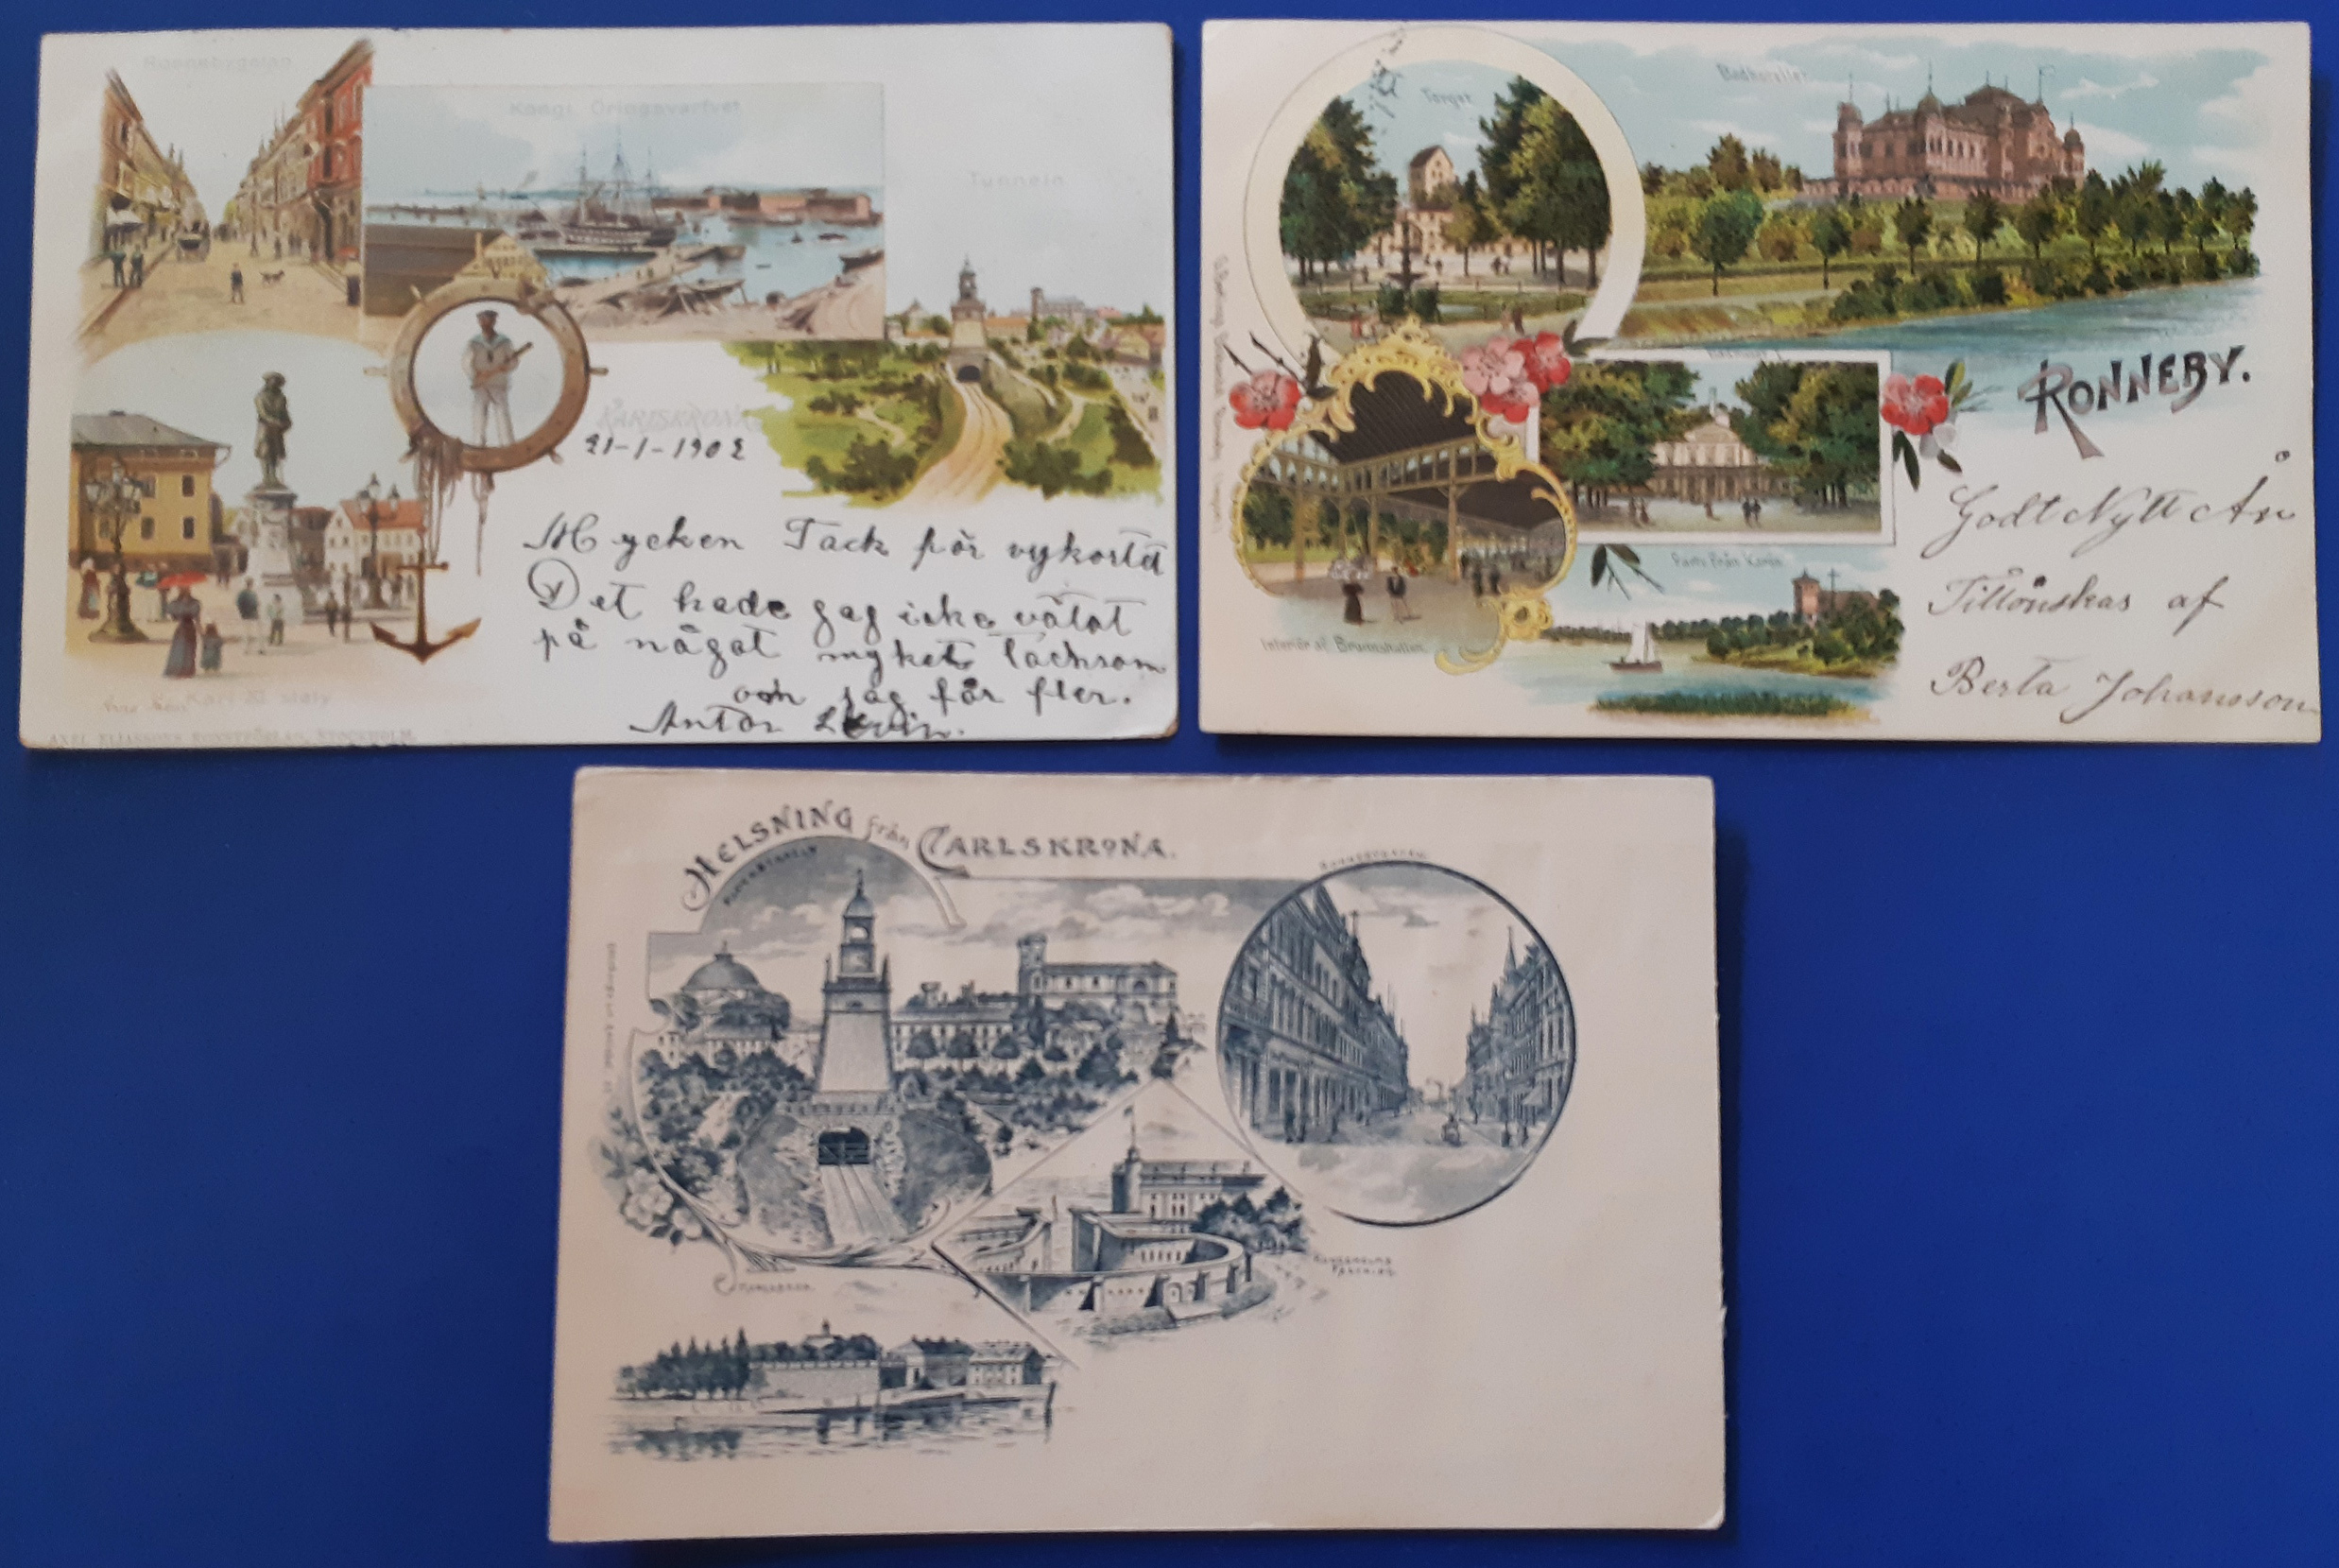 Ronnebygatan
Kongl. Örlogsvarfvet
Tunneln
KARLSKRONA
21-1-1902
Mycken Tack för vykortet
Det hade jag icke vätat
på någat myket tacksam
och jag får fler.
Anton
Karl XI staty
AXEL ELIASSONS KONSTFÖRLAG, STOCKHOLM.
Torget
Badhotellet
RONNEBY.
Godt Nytt År
Tillönskas af
Berta Johansson
Interiör af Brunnshallen
Parti från Karön
HELSNING från CARLSKRONA.
RONNEBYGATAN
KUNGSHOLMS
FÄSTNING